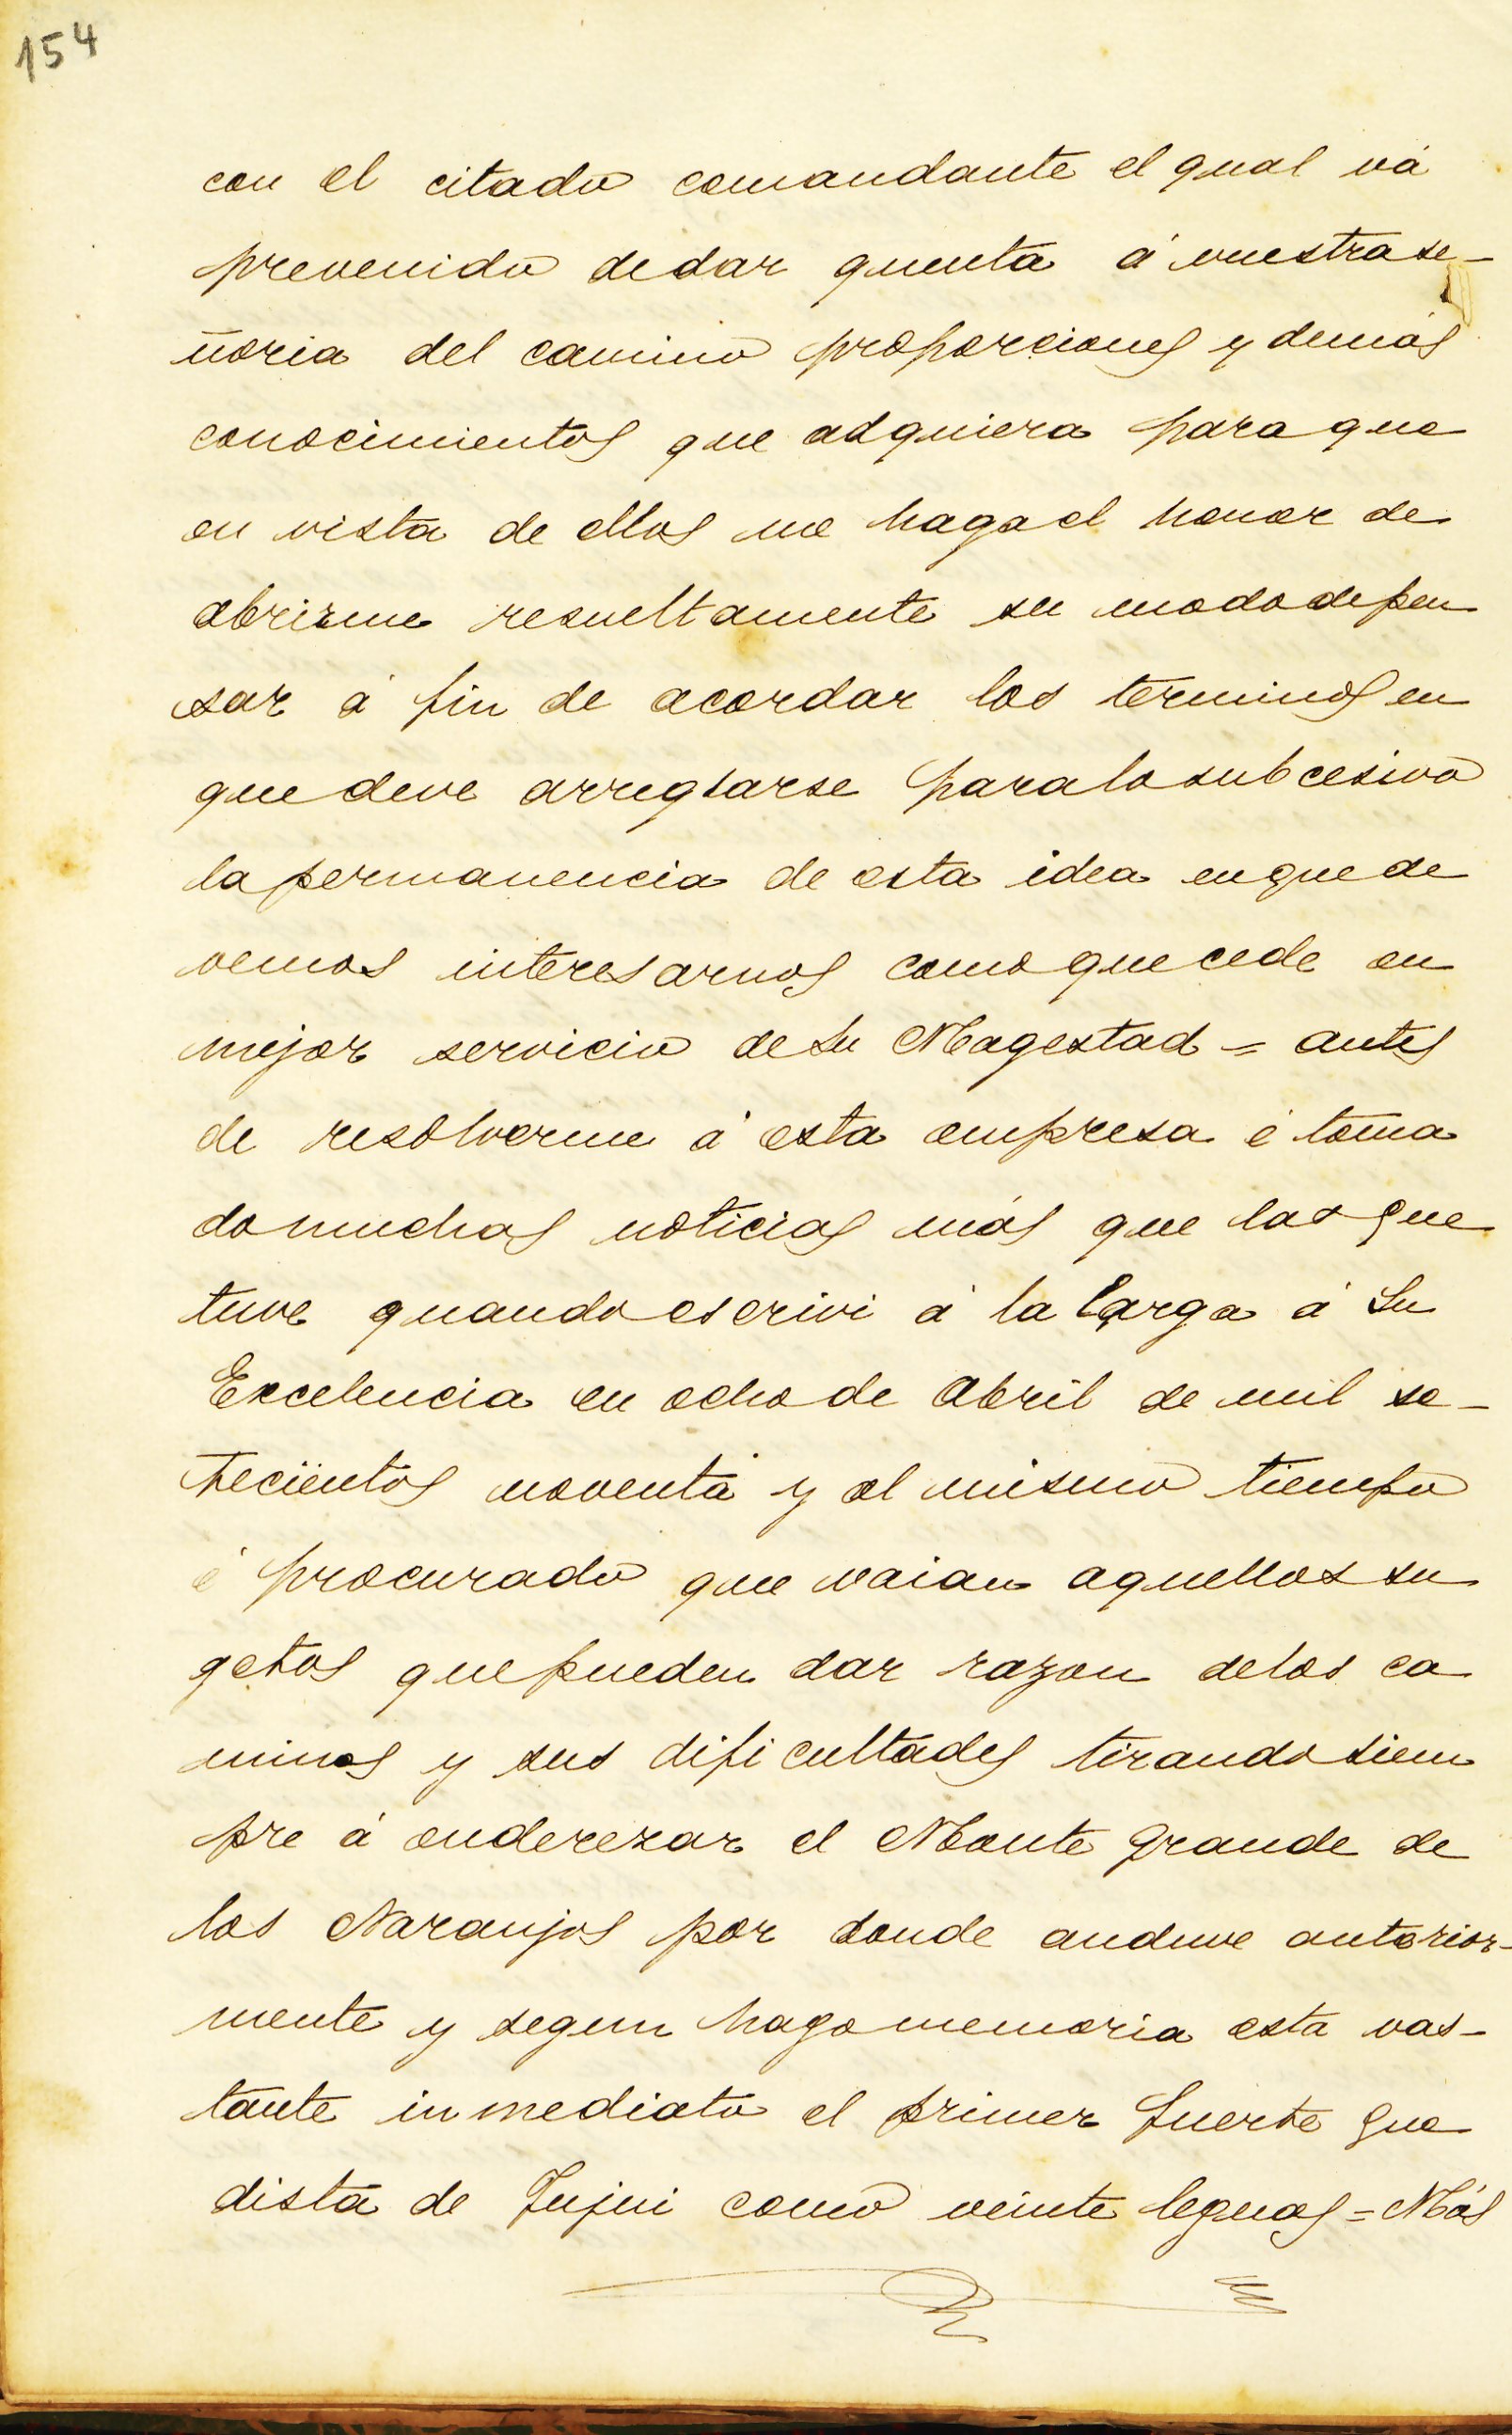 154
con el citado comandante el qual vá
prevenido dedar quenta á vuestrase-
ñoria del camino proporciones y demás
conocimientos que adquiera paraque
en vista de ellos me hagael honor de
abrirme resueltamente su mododepen
sar á fin de acordar los terminos en
quedeve arreglarse paralosubcesivo
lapermanencia de esta idea enquede
vemos interesarnos comoquecede en
mejor servicio desu Magestad = antes
de resolverme á esta empresa é toma
domuchas noticias más que lasque
tuve quandoescrivi á la larga á Su
Excelencia en ochode Abril de mil se-
tecientos noventa y al mismo tiempo
é procurado que vaian aquellossu
getos quepueden dar razon delos ca
minos y sus dificultades tirandosiem
pre á enderezar el Monte grande de
los Naranjos por donde anduve anterior-
mente y segun hagomemoria esta vas-
tante inmediato el primer fuerte que
dista de Jujui como veinte leguas = Más